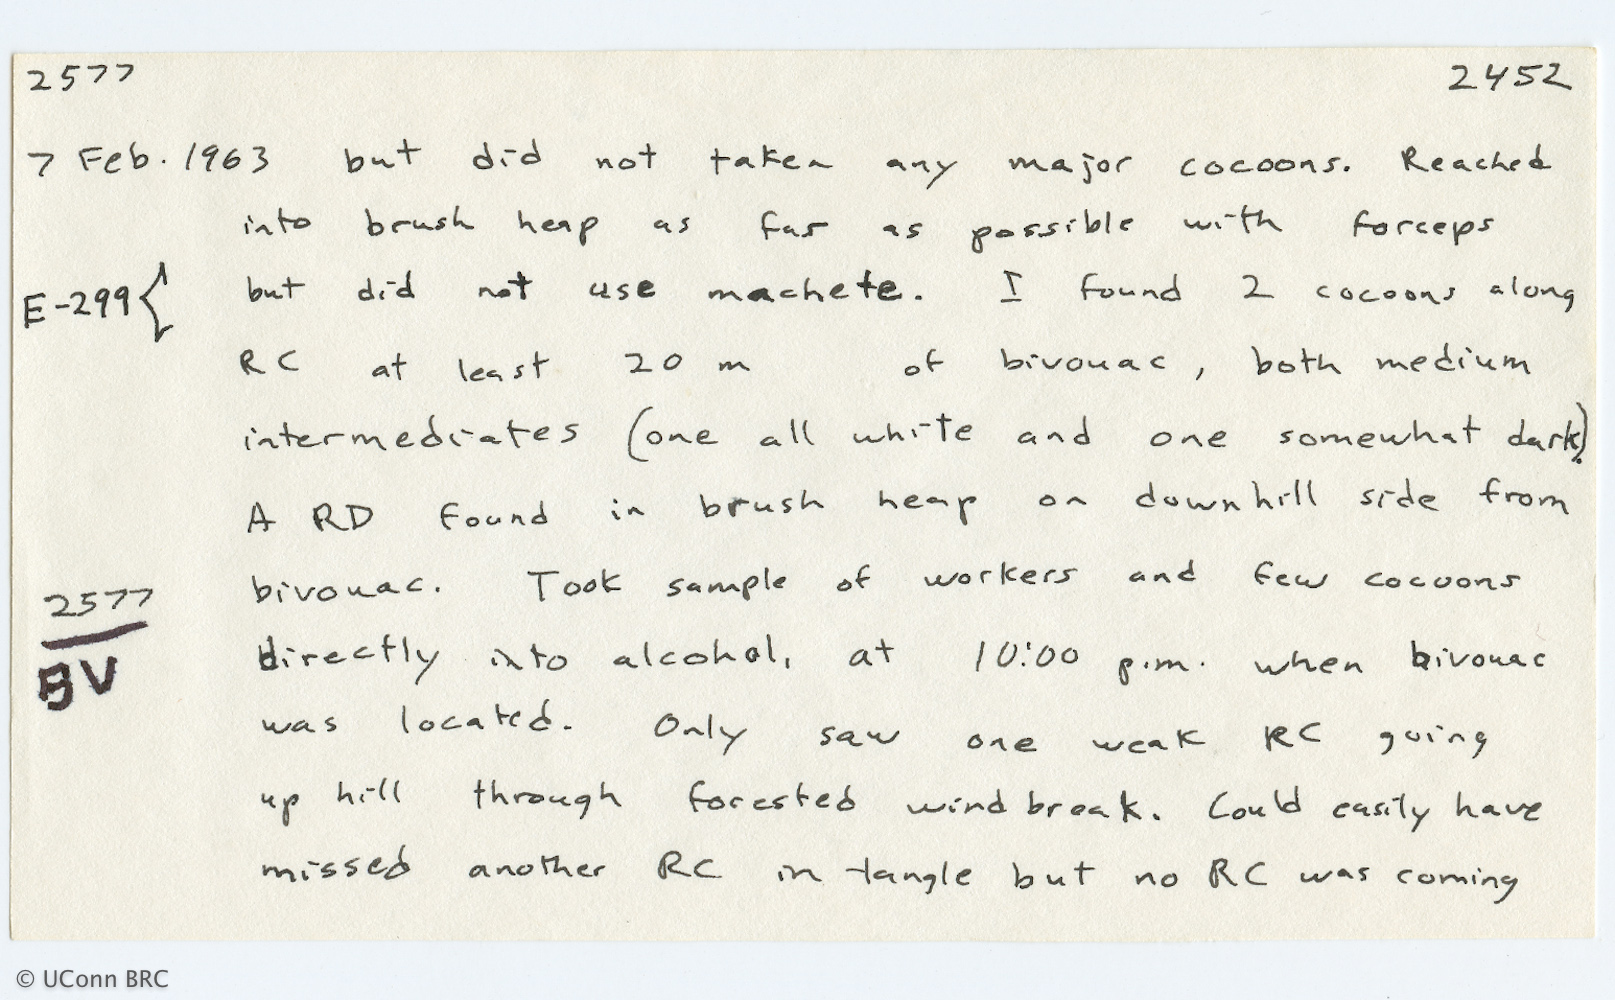 2577 2452
7 Feb. 1963 but did not taken any major cocoons. Reached
into brush heap as far as possible with forceps
E-299 { but did not use machete. I found 2 cocoons along
RC at least 20 m of bivouac, both medium
intermediates (one all white and one somewhat dark).
A RD found in brush heap on downhill side from
bivouac. Took sample of workers and few cocoons
2577
BV
directly into alcohol, at 10:00 p.m. when bivouac
was located. Only saw one weak RC going
up hill through forested windbreak. Could easily have
missed another RC in tangle but no RC was coming
© UConn BRC